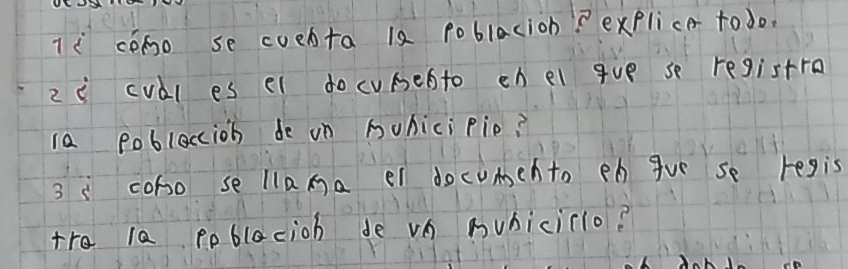 1 ¿ cómo se cuenta la poblacion? explica todo.
2 ¿ cuál es el documento en el que se registra
la poblaccion de un municipio?
3 ¿ como se llama el documento en que se regis
tra la poblacion de un municilio?
donde se